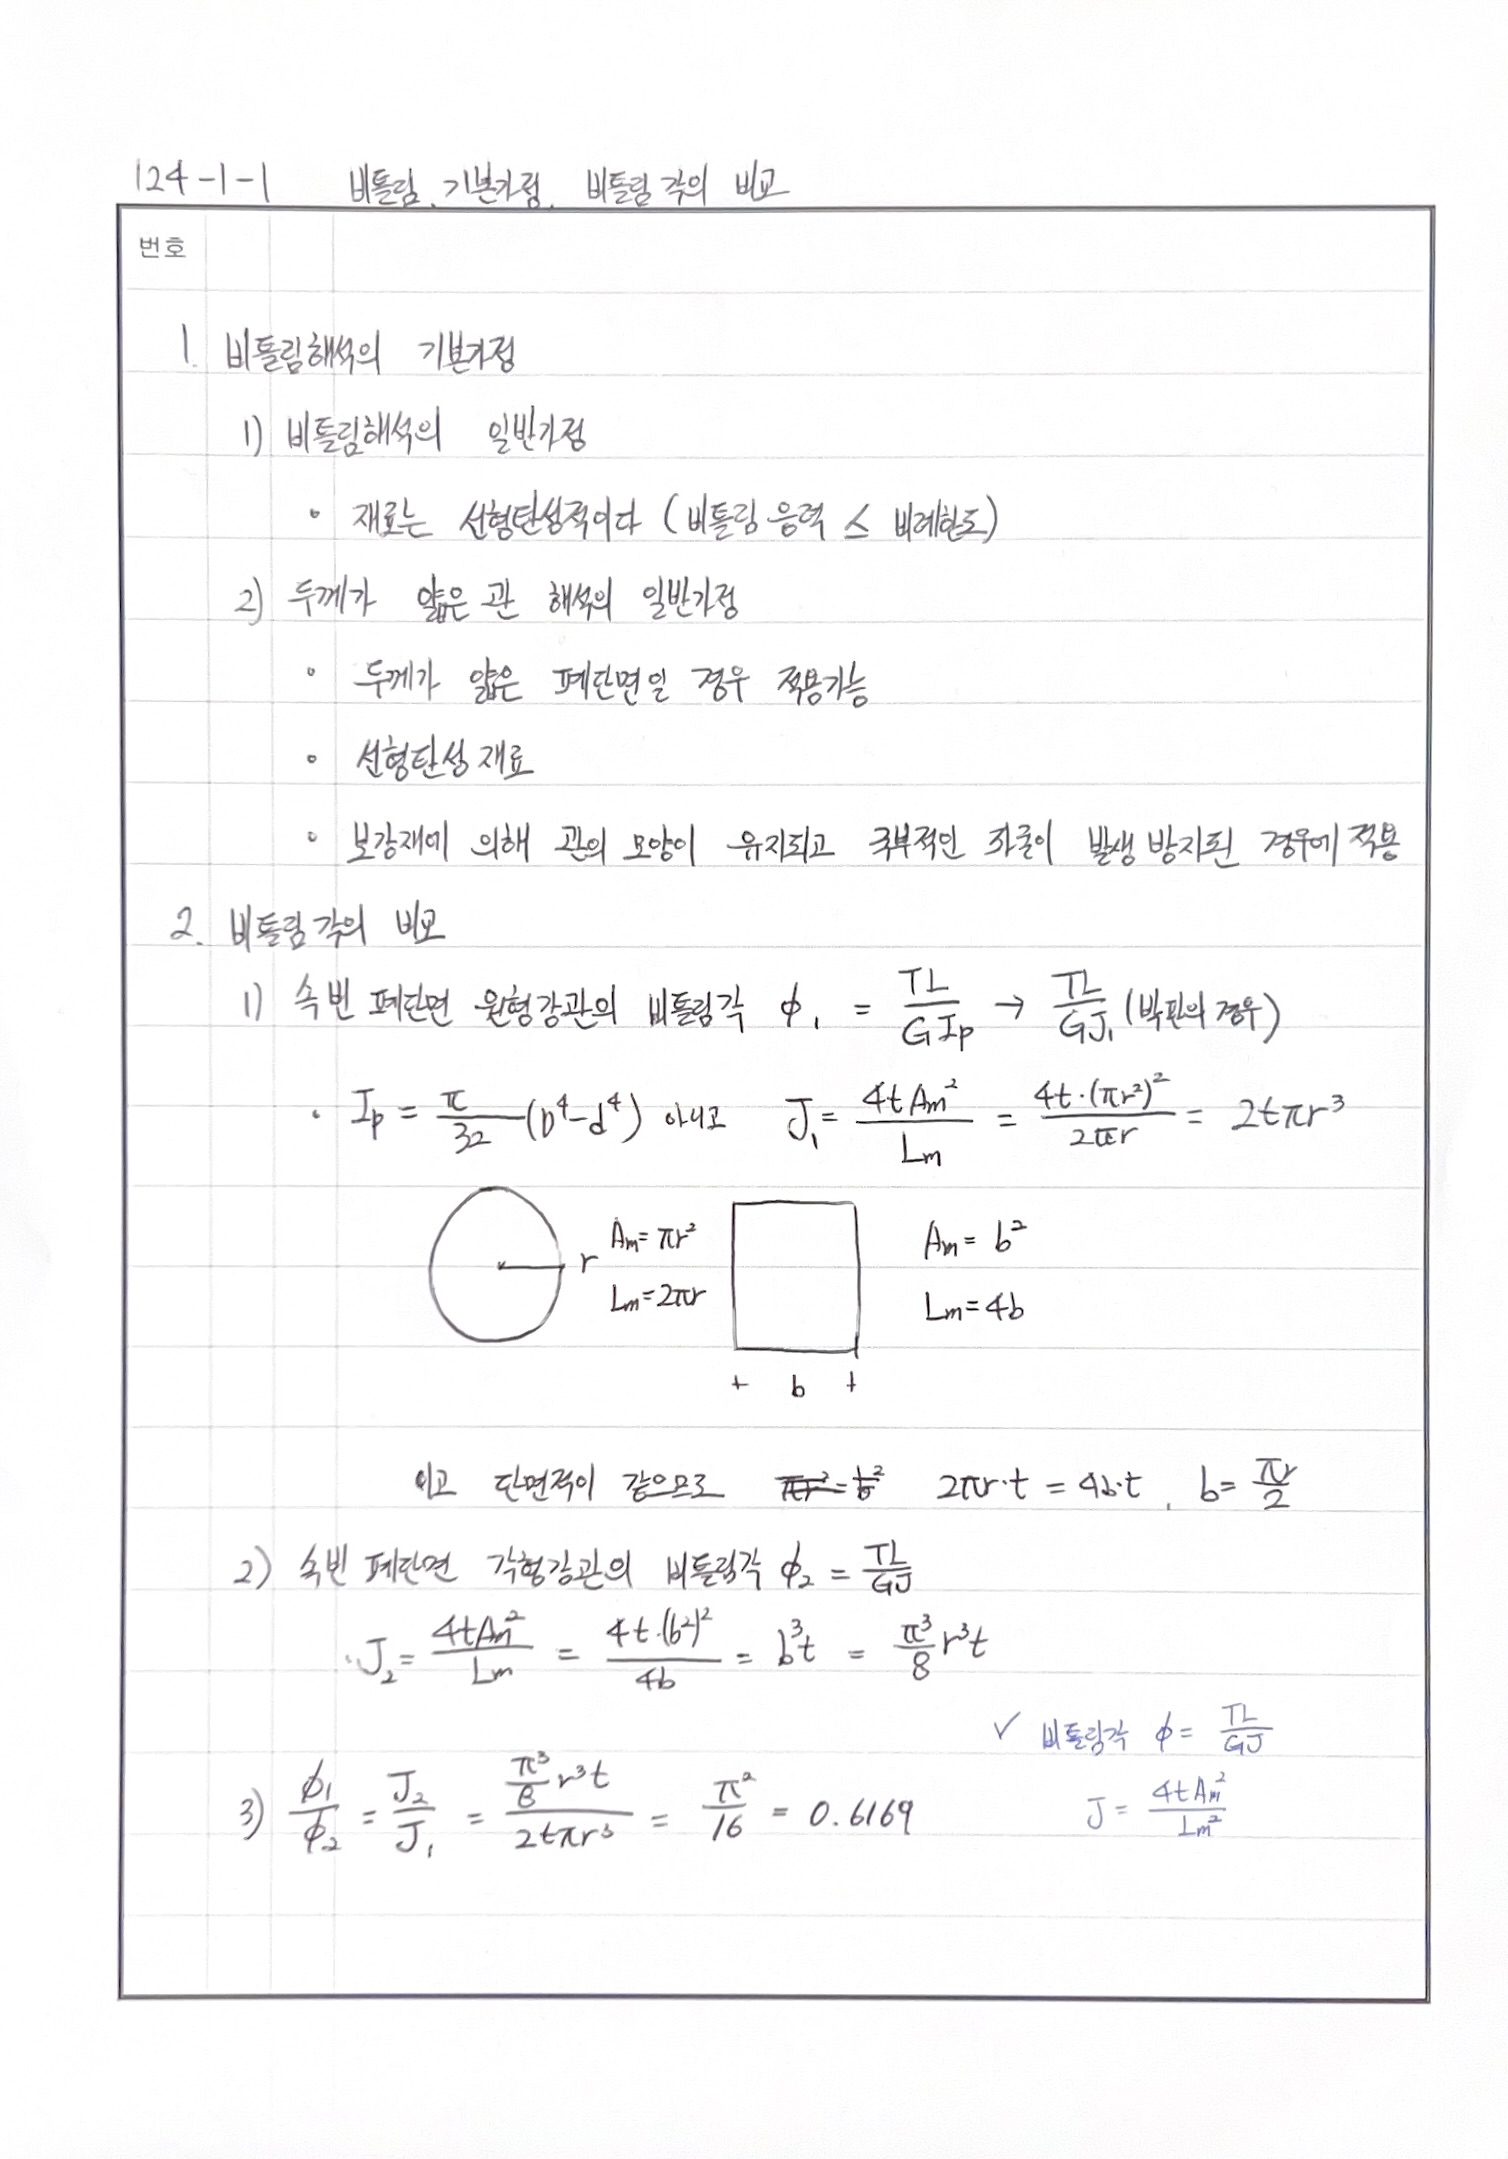 124-1-1 비틀림. 기본가정. 비틀림각의 비교
번호
1. 비틀림해석의 기본가정
1) 비틀림해석의 일반가정
• 재료는 선형탄성적이다 (비틀림응력 ≤ 비례한도)
2) 두께가 얇은 관 해석의 일반가정
• 두께가 얇은 폐단면일 경우 적용가능
• 선형탄성재료
• 보강재에 의해 관의 모양이 유지되고 국부적인 좌굴이 발생 방지된 경우에 적용
2. 비틀림각의 비교
1) 속빈 폐단면 원형강관의 비틀림각 ϕ₁ = TL/GIp → TL/GJ₁ (박판의 경우)
• Ip = π/32 (D⁴-d⁴) 아니고 J₁ = 4tAm²/Lm = 4t·(πr²)²/2πr = 2tπr³
r Am = πr² Am = b²
Lm = 2πr Lm = 4b
+ b +
이고 단면적이 같으므로 2πr·t = 4b·t, b = πr/2
2) 속빈 폐단면 각형강관의 비틀림각 ϕ₂ = TL/GJ
• J₂ = 4tAm²/Lm = 4t·(b²)²/4b = b³t = π³/8 r³t
✓ 비틀림각 ϕ = TL/GJ
3) ϕ₁/ϕ₂ = J₂/J₁ = π³/8 r³t / 2tπr³ = π²/16 = 0.6169
J = 4tAm²/Lm²